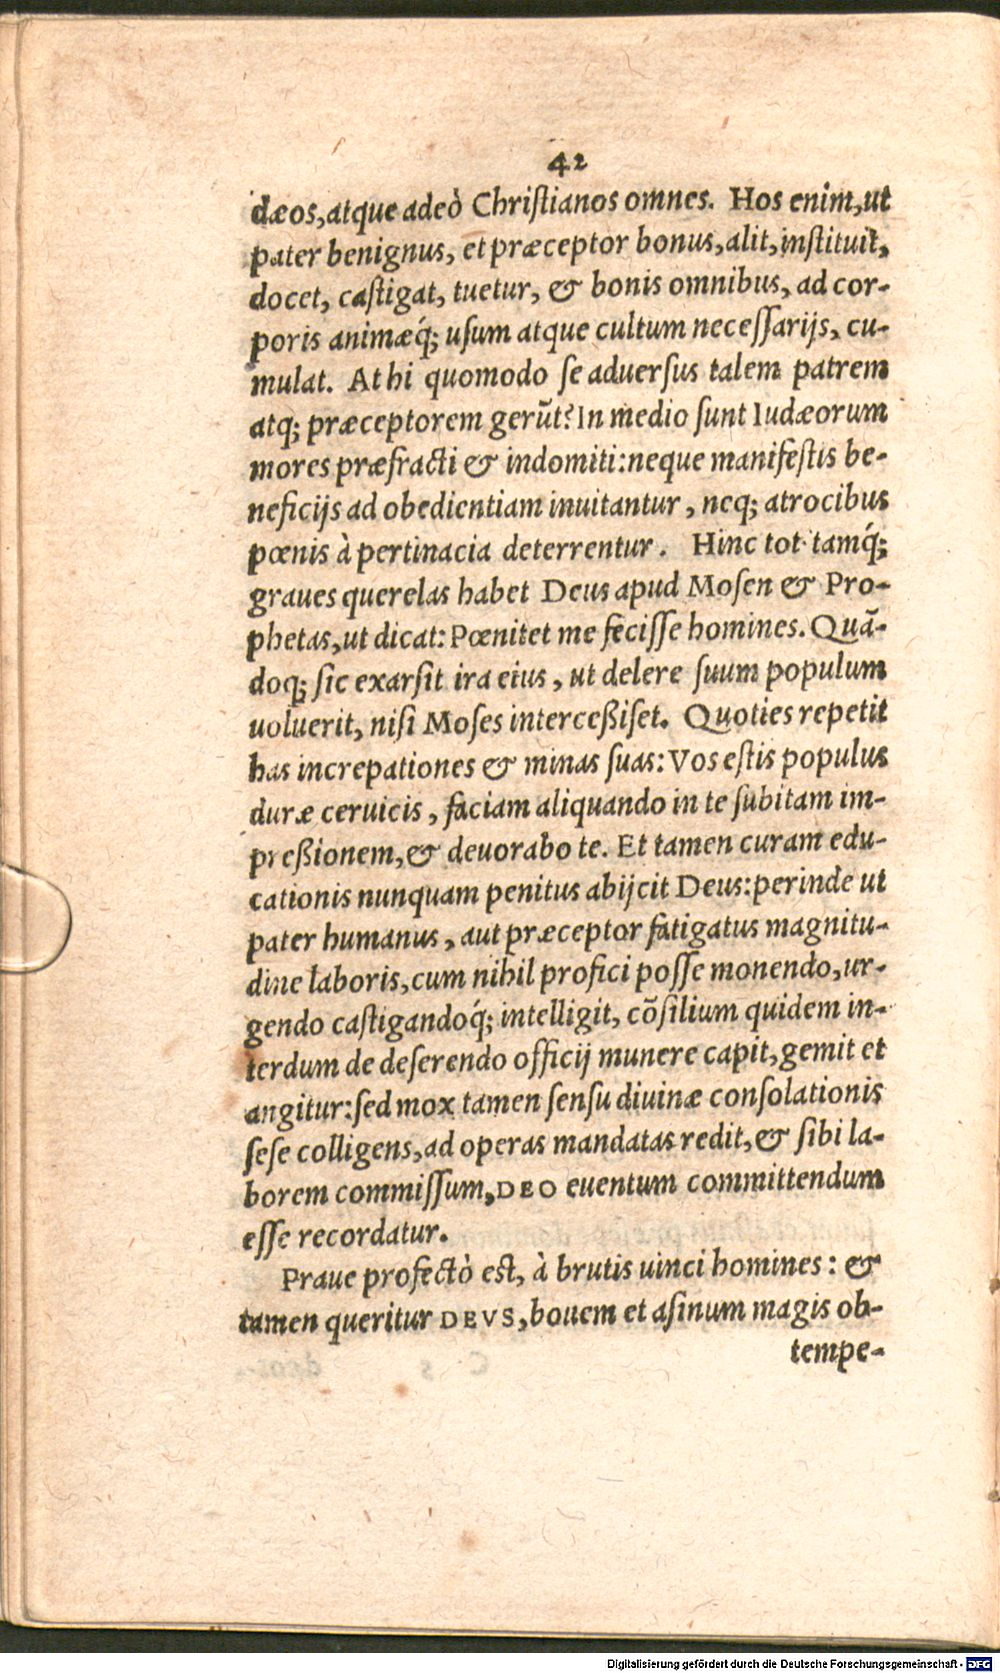 42
dæos, atque adeò Chriſtianos omnes. Hos enim, ut
pater benignus, et præceptor bonus, alit, inſtituit,
docet, caſtigat, tuetur, & bonis omnibus, ad cor-
poris animæq́; uſum atque cultum neceſſarijs, cu-
mulat. At hi quomodo ſe aduerſus talem patrem
atq; præceptorem gerũt? In medio ſunt Iudæorum
mores præfracti & indomiti: neque manifeſtis be-
neficijs ad obedientiam inuitantur, neq; atrocibus
pœnis à pertinacia deterrentur. Hinc tot tamq́;
graues querelas habet Deus apud Moſen & Pro-
phetas, ut dicat: Pœnitet me feciſſe homines. Quã-
doq; ſic exarſit ira eius, ut delere ſuum populum
uoluerit, niſi Moſes interceßiſet. Quoties repetit
has increpationes & minas ſuas: Vos eſtis populus
duræ ceruicis, faciam aliquando in te ſubitam im-
preßionem, & deuorabo te. Et tamen curam edu-
cationis nunquam penitus abijcit Deus: perinde ut
pater humanus, aut præceptor fatigatus magnitu-
dine laboris, cum nihil profici poſſe monendo, ur-
gendo caſtigandoq́; intelligit, cõſilium quidem in-
terdum de deſerendo officij munere capit, gemit et
angitur: ſed mox tamen ſenſu diuinæ conſolationis
ſeſe colligens, ad operas mandatas redit, & ſibi la-
borem commiſſum, DEO euentum committendum
eſſe recordatur.
Praue profectò eſt, à brutis uinci homines: &
tamen queritur DEVS, bouem et aſinum magis ob-
tempe-
Digitalisierung gefördert durch die Deutsche Forschungsgemeinschaft - DFG